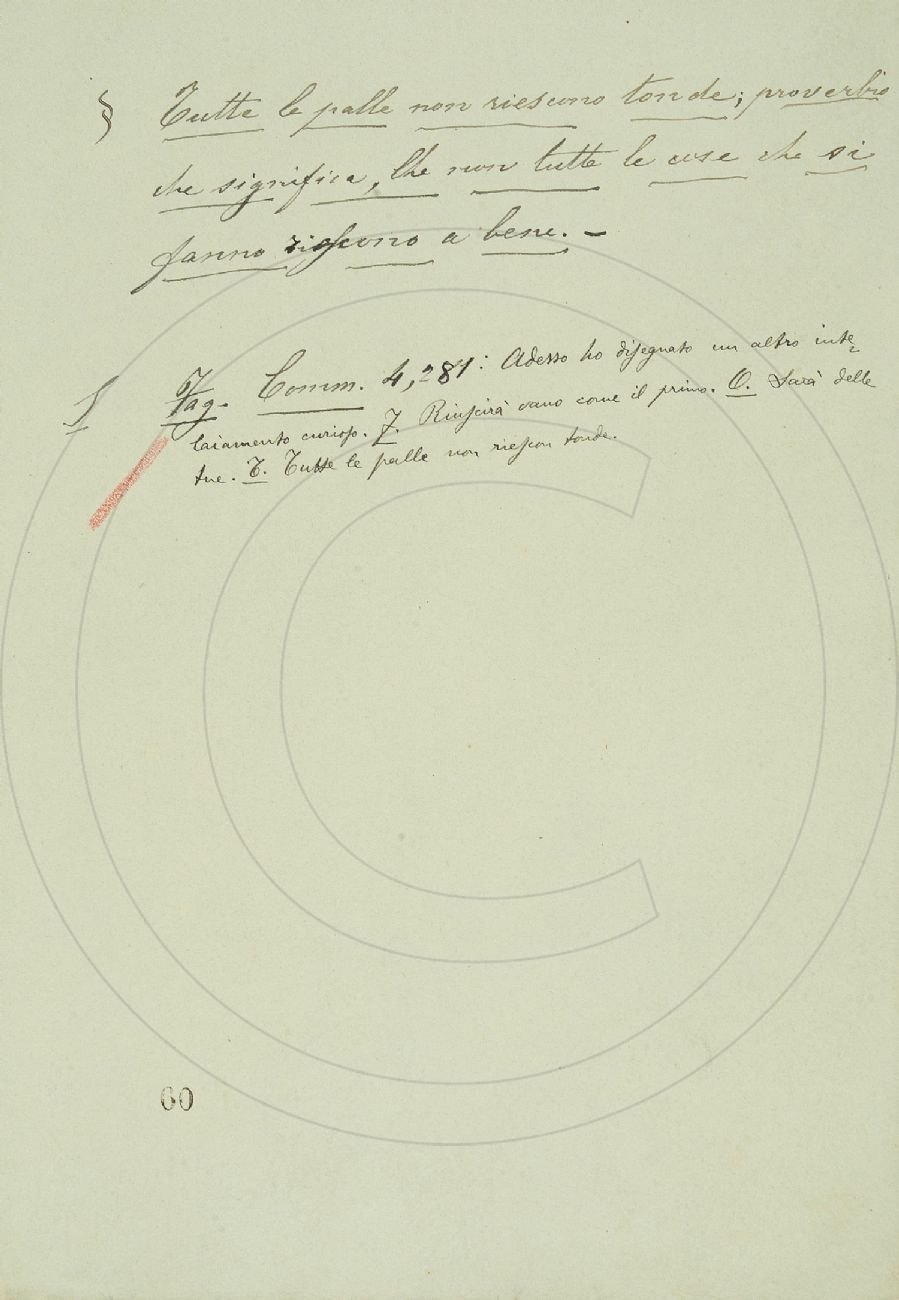 § Tutte le palle non riescono tonde; proverbio
che significa, Che non tutte le cose che si
fanno rieſcono a bene. –
Fag. Comm. 4,281: Adesso ho diſegnato un altro inte=
laiamento curioſo. J. Riuſcirà vano come il primo. O. Sarà delle
tue. T. Tutte le palle non rieſcon tonde.
60